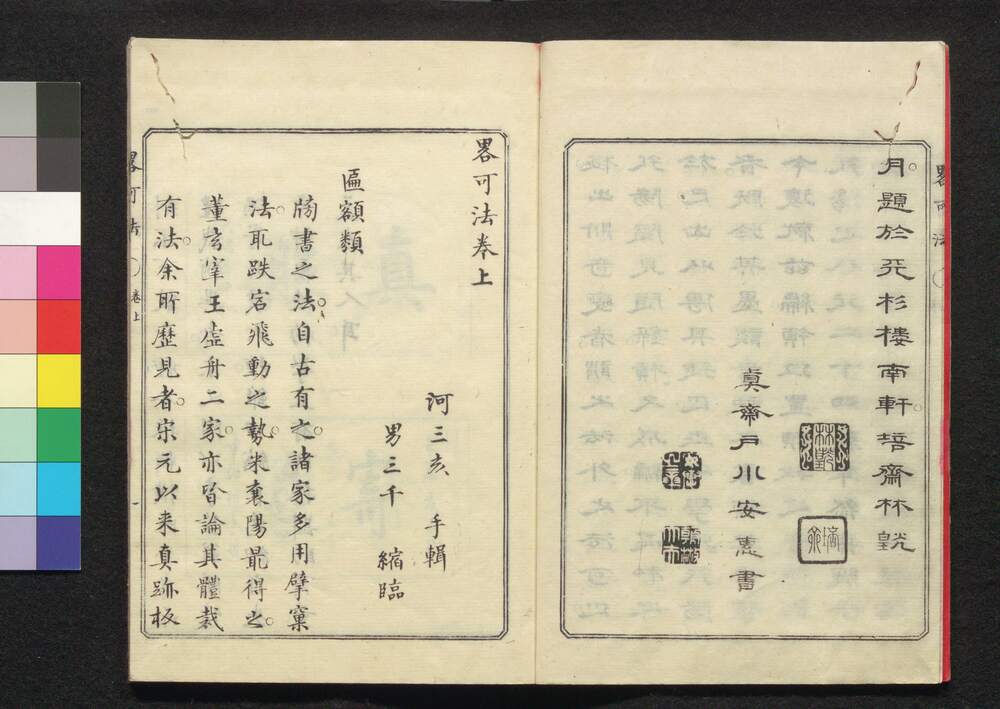 月題於天杉樓南軒培齋林皝
眞齋戸川安惠書
畧可法
畧可法卷上
河三亥 手輯
男三千 縮臨
匾額類
牓書之法自古有之諸家多用擘窠
法耴跌宕飛動之勢米襄陽最得之
董玄宰王虛舟二家亦皆論其體裁
有法余所歷見者宋元以来真跡板
畧可法 卷上 一